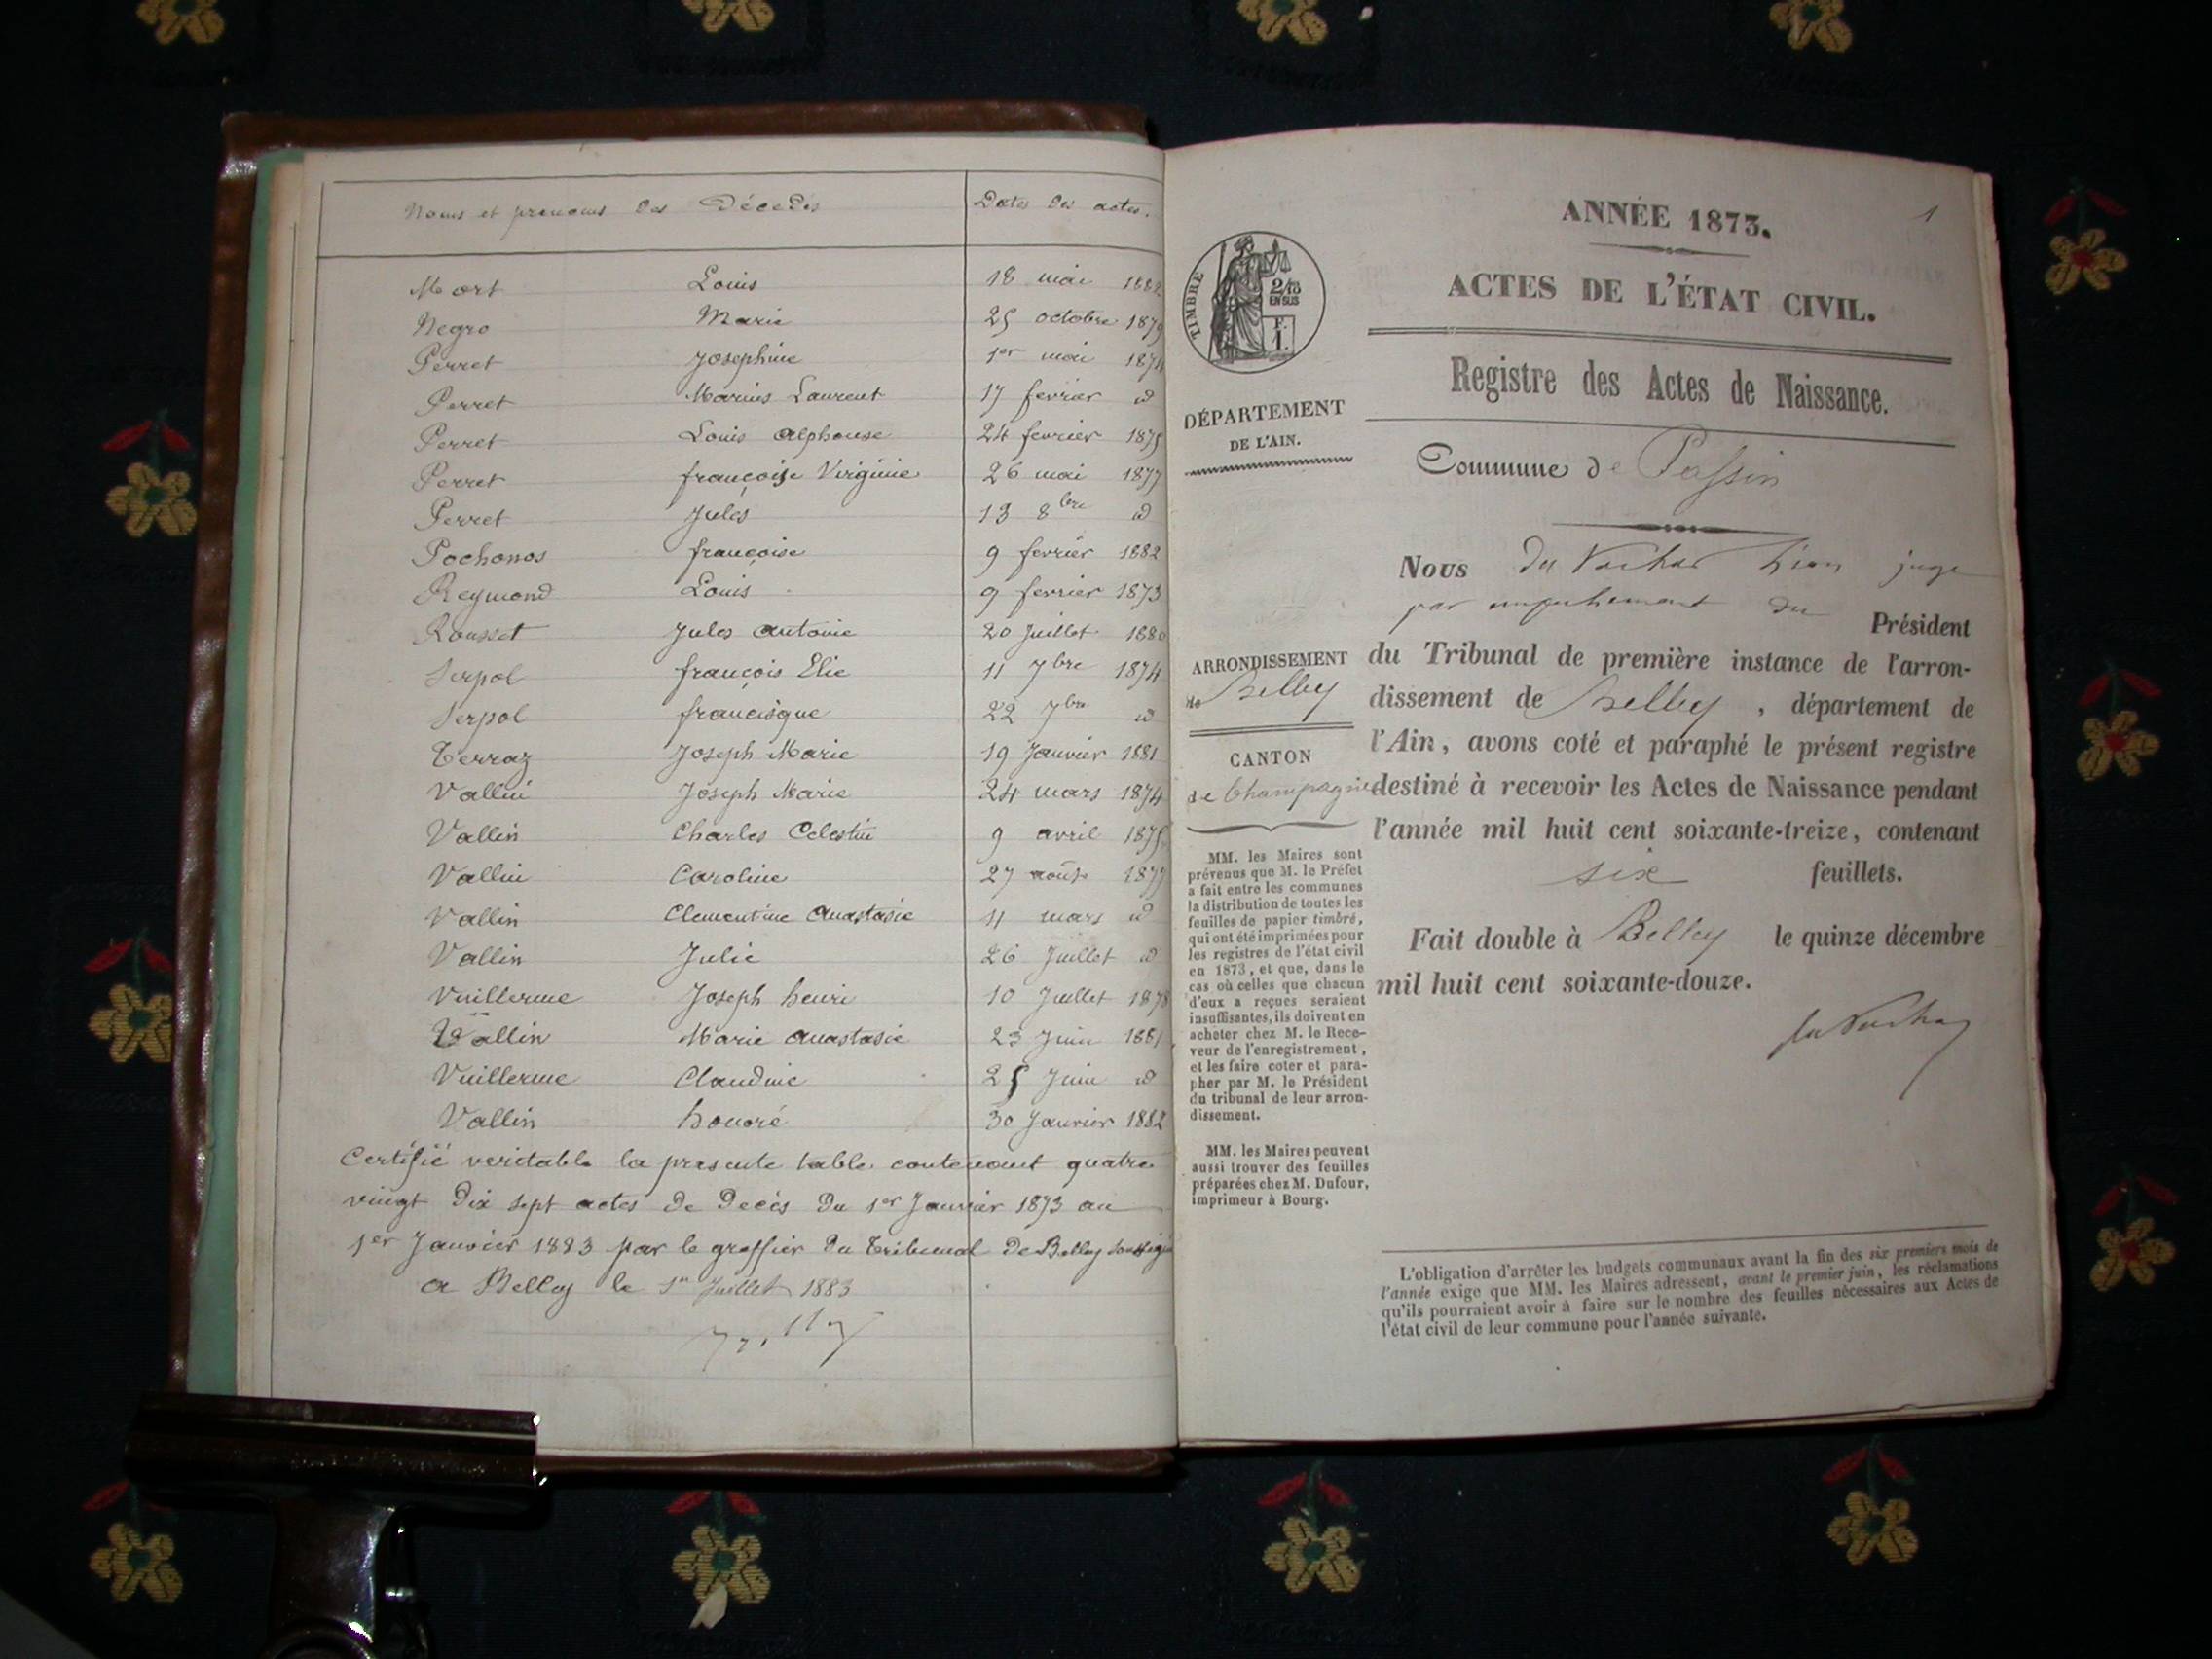 Noms et prenoms des Décédés Dates des actes.
Mort Louis 18 mai 1882
Negro Marie 25 octobre 1879
Perret Josephine 1er mai 1874
Perret Marius Laurent 17 fevrier id
Perret Louis Alphonse 24 fevrier 1875
Perret françoise Virginie 26 mai 1877
Perret Jules 13 8bre id
Pochonos françoise 9 fevrier 1882
Reymond Louis 9 fevrier 1873
Rousset Jules Antoine 20 Juillet 1880
Serpol françois Elie 11 7bre 1874
Serpol francisque 22 7bre id
Terraz Joseph Marie 19 Janvier 1881
Vallin Joseph Marie 24 mars 1874
Vallin Charles Celestin 9 avril 1875
Vallin Caroline 27 août 1877
Vallin Clementine Anastasie 11 mars id
Vallin Julie 26 Juillet id
Vuillerme Joseph henri 10 Juillet 1878
Vallin Marie Anastasie 23 Juin 1881
Vuillerme Claudine 25 Juin id
Vallin honoré 30 Janvier 1882
Certifié veritable la presente table contenant quatre
vingt dix sept actes de Decès du 1er Janvier 1873 au
1er Janvier 1883 par le greffier du Tribunal de Belley soussigné
a Belley le 1er Juillet 1883
1
ANNÉE 1873.
ACTES DE L'ÉTAT CIVIL.
Registre des Actes de Naissance.
Commune de Passin
TIMBRE
2/10
EN SUS
F.
1.
DÉPARTEMENT
DE L'AIN.
ARRONDISSEMENT
de Belley
CANTON
de Champagne
MM. les Maires sont
prévenus que M. le Préfet
a fait entre les communes
la distribution de toutes les
feuilles de papier timbré,
qui ont été imprimées pour
les registres de l'état civil
en 1873, et que, dans le
cas où celles que chacun
d'eux a reçues seraient
insuffisantes, ils doivent en
acheter chez M. le Rece-
veur de l'enregistrement,
et les faire coter et para-
pher par M. le Président
du tribunal de leur arron-
dissement.
MM. les Maires peuvent
aussi trouver des feuilles
préparées chez M. Dufour,
imprimeur à Bourg.
Nous du Vachat juge
par empechement du Président
du Tribunal de première instance de l'arron-
dissement de Belley, département de
l'Ain, avons coté et paraphé le présent registre
destiné à recevoir les Actes de Naissance pendant
l'année mil huit cent soixante-treize, contenant
six feuillets.
Fait double à Belley le quinze décembre
mil huit cent soixante-douze.
du Vachat
L'obligation d'arrêter les budgets communaux avant la fin des six premiers mois de
l'année exige que MM. les Maires adressent, avant le premier juin, les réclamations
qu'ils pourraient avoir à faire sur le nombre des feuilles nécessaires aux Actes de
l'état civil de leur commune pour l'année suivante.